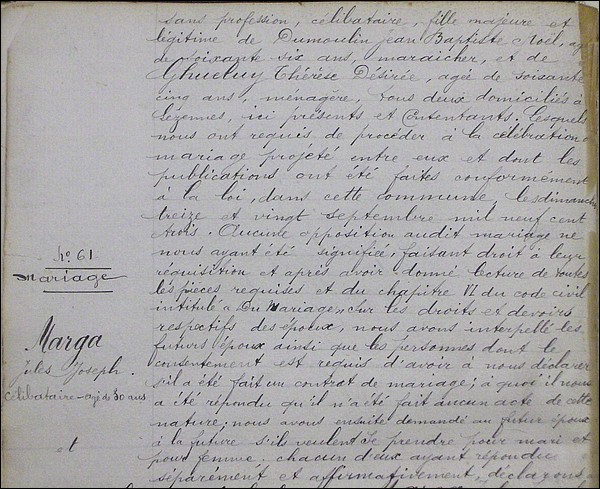 sans profession, célibataire, fille majeure et
légitime de Dumoulin Jean Baptiste Noël, agé
de soixante dix ans, maraicher, et de
Thérèse Désirée, agée de soixante
cinq ans, ménagère, tous deux domiciliés à
Lézennes, ici présents et consentants; lesquels
nous ont requis de procéder à la célébration
mariage projeté entre eux et dont les
publications ont été faites conformément
à la loi, dans cette commune, les dimanches
treize et vingt septembre mil neuf cent
trois. Aucune opposition audit mariage ne
nous ayant été signifiée, faisant droit à leur
réquisition et après avoir donné lecture de toutes
les pièces requises et du chapitre VI du code civil
intitulé « Du Mariage » sur les droits et devoirs
respectifs des époux, nous avons interpellé les
futurs époux ainsi que les personnes dont le
consentement est requis d'avoir à nous déclarer
s'il a été fait un contrat de mariage; à quoi il nous
a été répondu qu'il n'a été fait aucun acte de cette
nature; nous avons ensuite demandé au futur époux
à la future s'ils veulent se prendre pour mari et
pour femme. chacun d'eux ayant répondu
séparément et affirmativement, déclarons
No 61
Mariage
Marga
Jules Joseph.
célibataire - agé de 30 ans
et